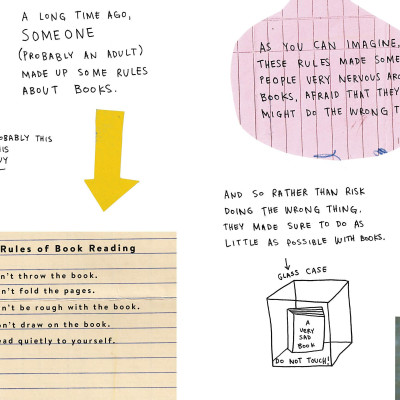 A LONG TIME AGO,
SOMEONE
(PROBABLY AN ADULT)
MADE UP SOME RULES
ABOUT BOOKS.
THIS
Rules of Book Reading
throw the book.
fold the pages.
be rough with the book.
draw on the book.
quietly to yourself.
AS YOU CAN IMAGINE,
THESE RULES MADE SOME
PEOPLE VERY NERVOUS
BOOKS, AFRAID THAT THEY
MIGHT DO THE WRONG
AND SO RATHER THAN RISK
DOING THE WRONG THING,
THEY MADE SURE TO DO AS
LITTLE AS POSSIBLE WITH BOOKS.
GLASS CASE
A
VERY
SAD
BOOK
DO NOT TOUCH!